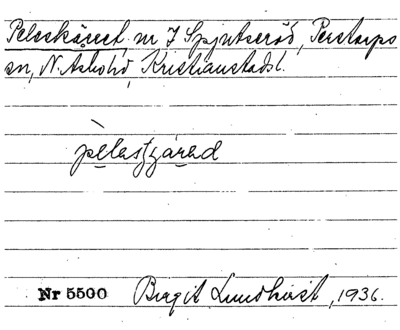 Pelleskäret, nr 7 Spjutseröd, Perstorps
sn, N. Åsbohd, Kristianstads l.
pelasʒäræd
Nr 5500 Birgit Lundkvist, 1936.